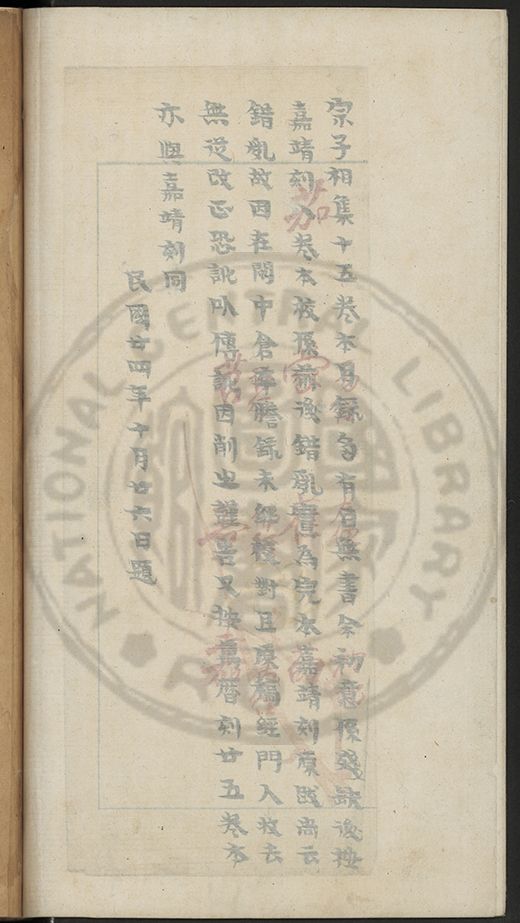 宗子相集十五卷本目錄多有目無書余初意係殘缺後按
嘉靖刻八卷本校係前後錯亂實為完本嘉靖刻原跋尚云
錯亂故因在閩中倉卒謄錄未經校對且原稿經門人攷去
無從改正恐訛以傳訛因削之謹善又按萬曆刻廿五卷本
亦與嘉靖刻同
民國廿四年十月廿六日題
NATIONAL CENTRAL LIBRARY